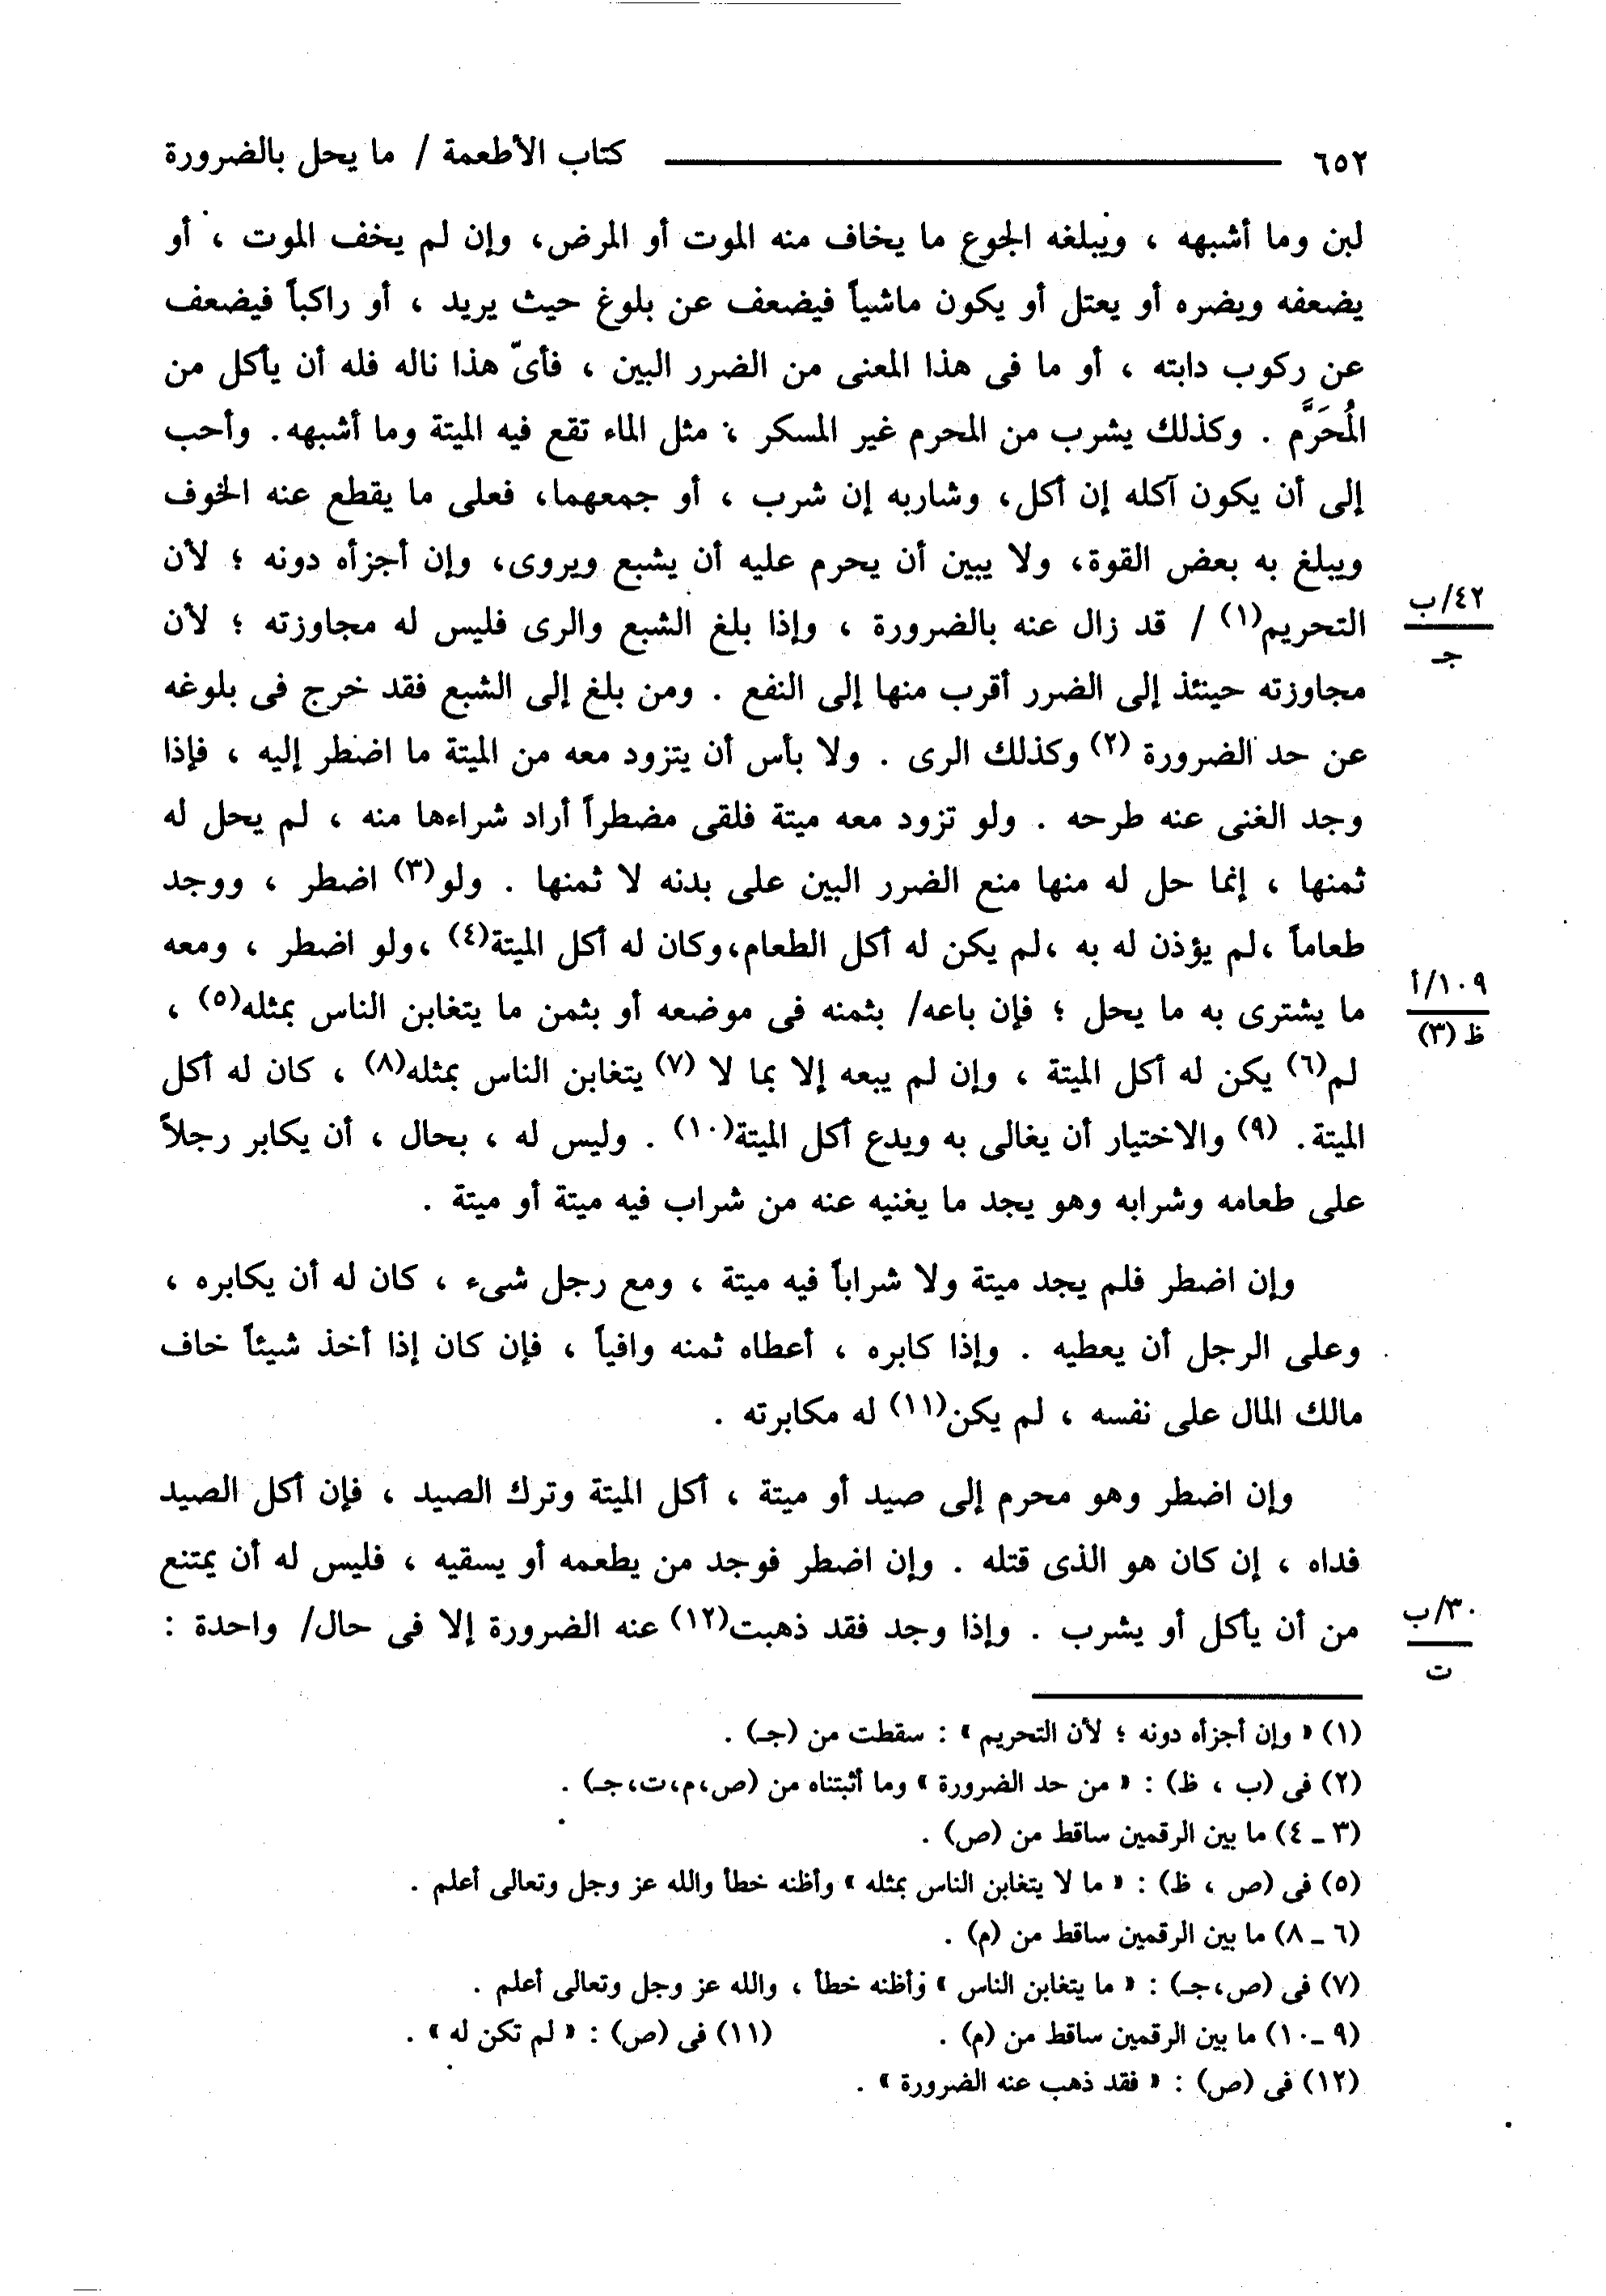 ٦٥٢ ــــــــــــــــــــ كتاب الأطعمة / ما يحل بالضرورة
لبن وما أشبهه ، ويبلغه الجوع ما يخاف منه الموت أو المرض، وإن لم يخف الموت ، أو
يضعفه ويضره أو يعتل أو يكون ماشياً فيضعف عن بلوغ حيث يريد ، أو راكباً فيضعف
عن ركوب دابته ، أو ما فى هذا المعنى من الضرر البين ، فأىّ هذا ناله فله أن يأكل من
المُحَرَّم . وكذلك يشرب من المحرم غير المسكر ، مثل الماء تقع فيه الميتة وما أشبهه. وأحب
إلى أن يكون آكله إن أكل، وشاربه إن شرب ، أو جمعهما، فعلى ما يقطع عنه الخوف
ويبلغ به بعض القوة، ولا يبين أن يحرم عليه أن يشبع ويروى، وإن أجزأه دونه ؛ لأن
التحريم(١) / قد زال عنه بالضرورة ، وإذا بلغ الشبع والرى فليس له مجاوزته ؛ لأن
٤٢/ب
جـ
مجاوزته حينئذ إلى الضرر أقرب منها إلى النفع . ومن بلغ إلى الشبع فقد خرج فى بلوغه
عن حد الضرورة (٢) وكذلك الرى . ولا بأس أن يتزود معه من الميتة ما اضطر إليه ، فإذا
وجد الغنى عنه طرحه . ولو تزود معه ميتة فلقى مضطراً أراد شراءها منه ، لم يحل له
ثمنها ، إنما حل له منها منع الضرر البين على بدنه لا ثمنها . ولو(٣) اضطر ، ووجد
طعاماً ،لم يؤذن له به ،لم يكن له أكل الطعام،وكان له أكل الميتة(٤) ،ولو اضطر ، ومعه
ما يشترى به ما يحل ؛ فإن باعه/ بثمنه فى موضعه أو بثمن ما يتغابن الناس بمثله(٥) ،
١٠٩/أ
ظ (٣)
لم(٦) يكن له أكل الميتة ، وإن لم يبعه إلا بما لا (٧) يتغابن الناس بمثله(٨) ، كان له أكل
الميتة. (٩) والاختيار أن يغالى به ويدع أكل الميتة(١٠) . وليس له ، بحال ، أن يكابر رجلاً
على طعامه وشرابه وهو يجد ما يغنيه عنه من شراب فيه ميتة أو ميتة .
وإن اضطر فلم يجد ميتة ولا شراباً فيه ميتة ، ومع رجل شىء ، كان له أن يكابره ،
وعلى الرجل أن يعطيه . وإذا كابره ، أعطاه ثمنه وافياً ، فإن كان إذا أخذ شيئاً خاف
مالك المال على نفسه ، لم يكن(١١) له مكابرته .
وإن اضطر وهو محرم إلى صيد أو ميتة ، أكل الميتة وترك الصيد ، فإن أكل الصيد
فداه ، إن كان هو الذى قتله . وإن اضطر فوجد من يطعمه أو يسقيه ، فليس له أن يمتنع
من أن يأكل أو يشرب . وإذا وجد فقد ذهبت(١٢) عنه الضرورة إلا فى حال/ واحدة :
٣٠/ب
ت
(١) « وإن أجزأه دونه ؛ لأن التحريم » : سقطت من (جـ) .
(٢) فى (ب ، ظ) : « من حد الضرورة » وما أثبتناه من (ص،م،ت،جـ) .
(٣ ـ ٤) ما بين الرقمين ساقط من (ص) .
(٥) فى (ص ، ظ) : « ما لا يتغابن الناس بمثله » وأظنه خطأ والله عز وجل وتعالى أعلم .
(٦ ـ ٨) ما بين الرقمين ساقط من (م) .
(٧) فى (ص،جـ) : « ما يتغابن الناس » وأظنه خطأ ، والله عز وجل وتعالى أعلم .
(٩ ـ ١٠) ما بين الرقمين ساقط من (م) . (١١) فى (ص) : « لم تكن له » .
(١٢) فى (ص) : « فقد ذهب عنه الضرورة » .